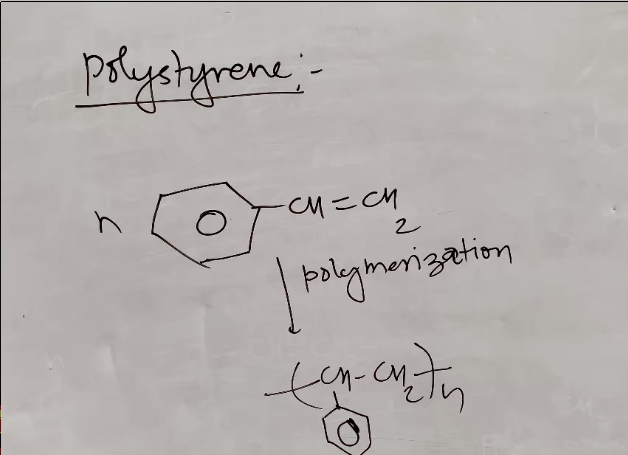 Polystyrene:-
n CH=CH2
polymerization
(CH-CH2)n